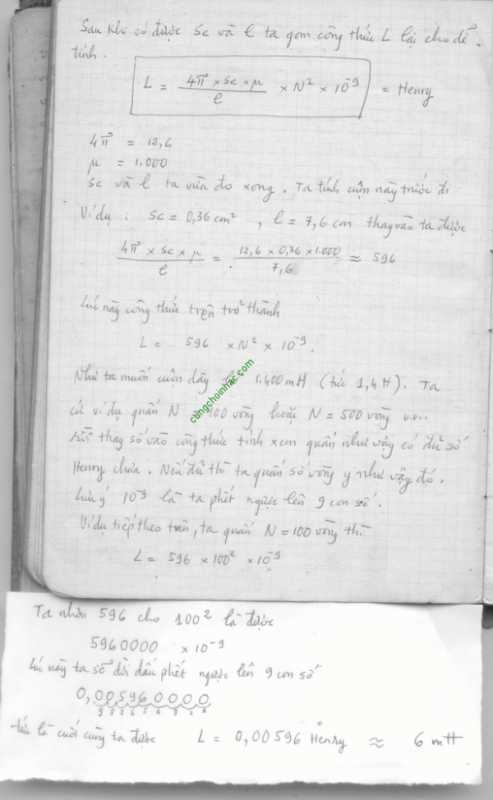 Sau khi có được Sc và l ta gom công thức L lại cho dễ
tính.
L = 4π × Sc × μ / l × N² × 10⁻⁹ = Henry
4π = 12,6
μ = 1.000
Sc và l ta vừa đo xong. Ta tính cuộn này trước đi
Ví dụ : Sc = 0,36 cm² , l = 7,6 cm thay vào ta được
4π × Sc × μ / l = 12,6 × 0,36 × 1.000 / 7,6 ≈ 596
Lúc này công thức trên trở thành
L = 596 × N² × 10⁻⁹.
Như ta muốn cuộn dây 1.400mH (tức 1,4H). Ta
cứ ví dụ quấn N 100 vòng hoặc N = 500 vòng v.v..
rồi thay số vào công thức tính xem quấn như vậy có đủ số
Henry chưa. Nếu đủ thì ta quấn số vòng y như vậy đó.
Lưu ý 10⁻⁹ là ta phết ngược lên 9 con số.
Ví dụ tiếp theo trên, ta quấn N = 100 vòng thì
L = 596 × 100² × 10⁻⁹
Ta nhân 596 cho 100² là được
5960000 × 10⁻⁹
Lúc này ta sẽ dời dấu phết ngược lên 9 con số
0,005960000
tức là cuối cùng ta được L = 0,00596 Henry ≈ 6 mH
cungchoinhac.com